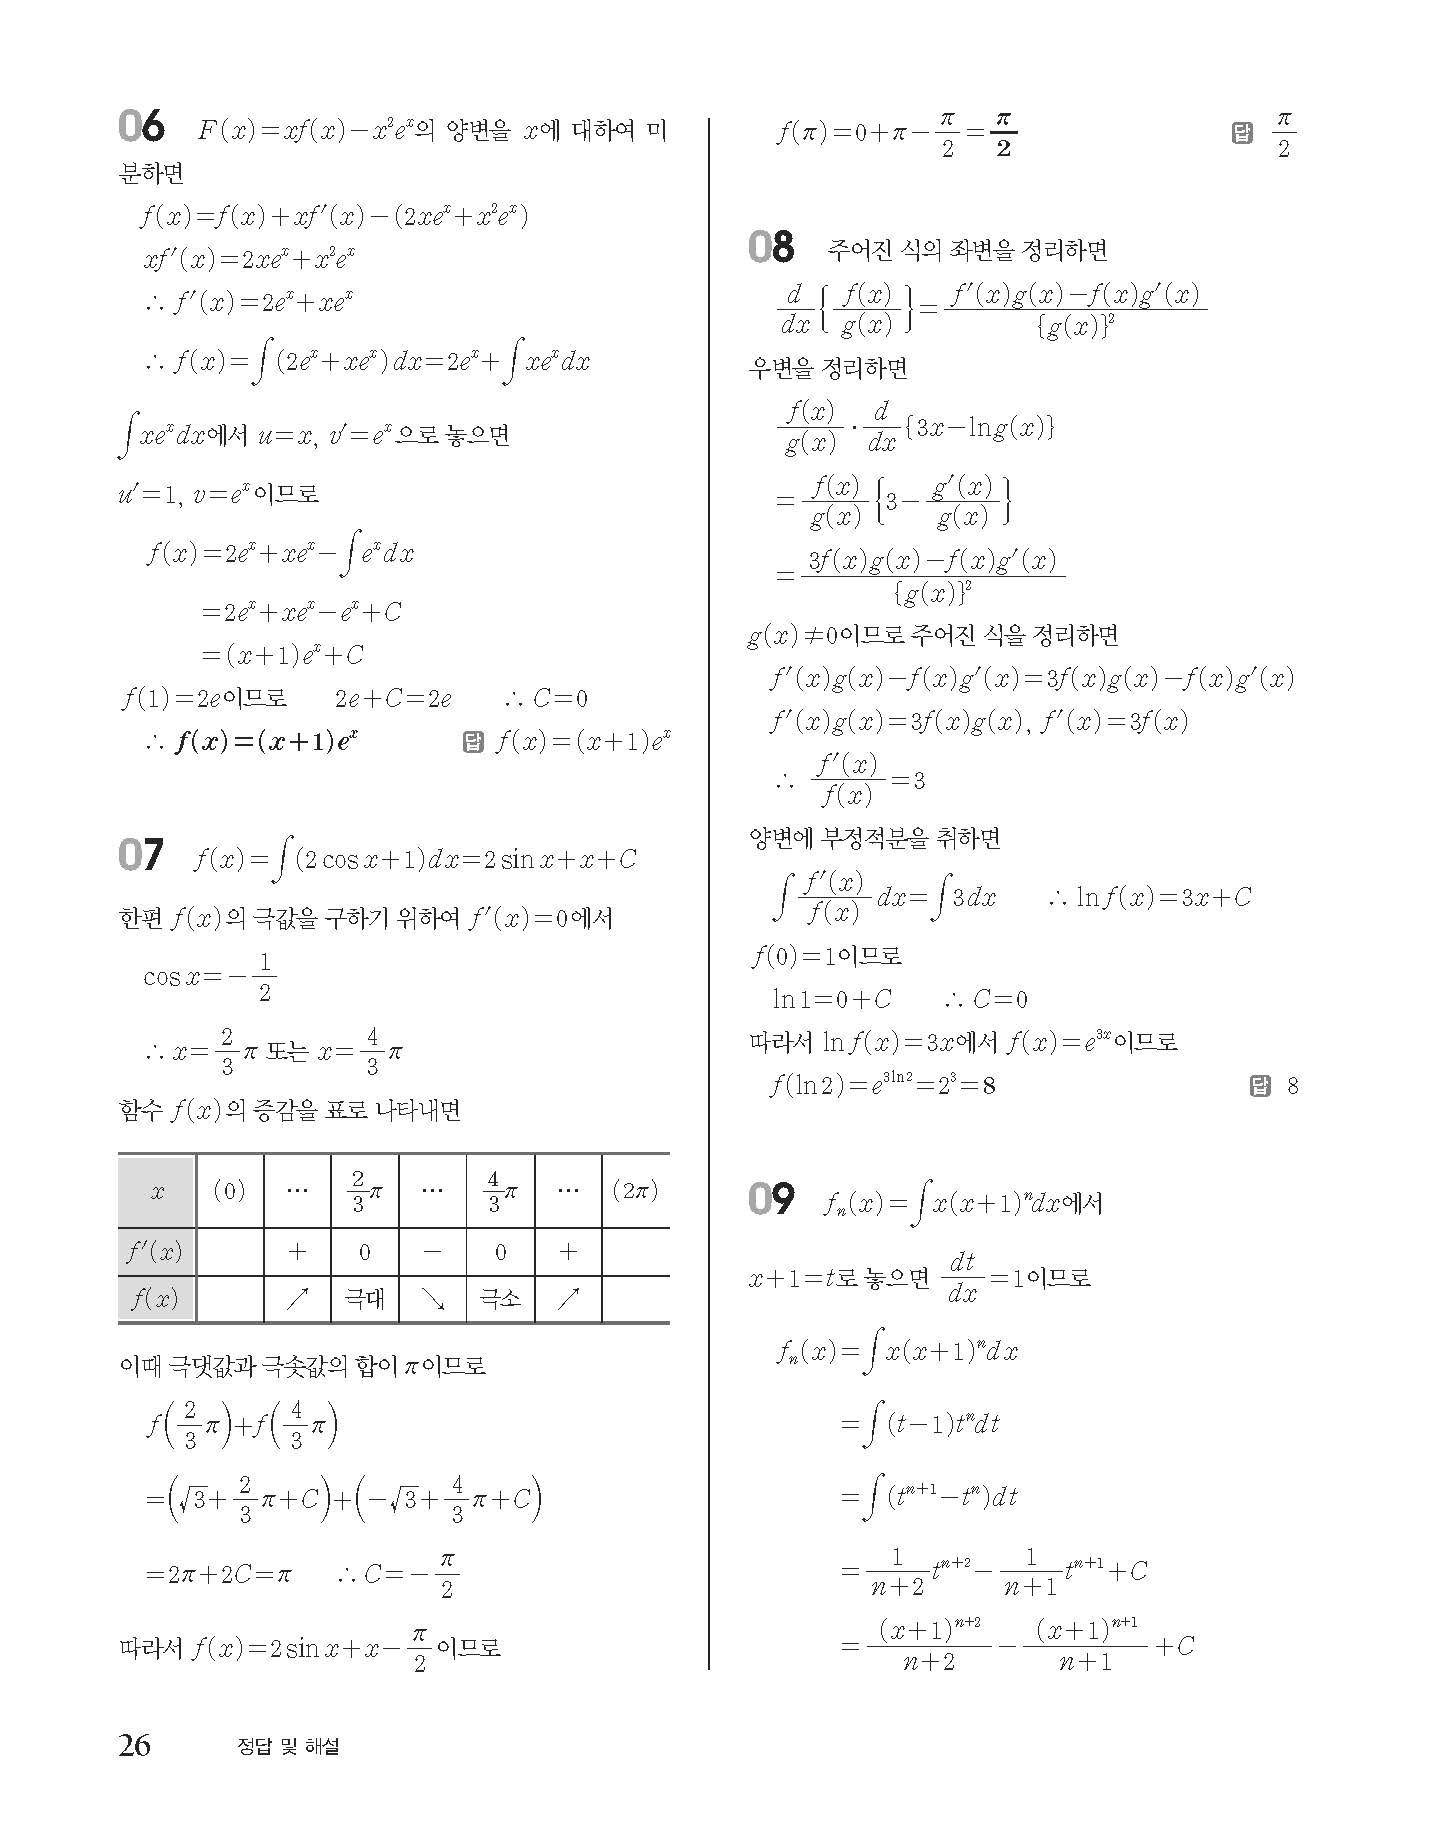 06 F(x)=xf(x)-x²eˣ의 양변을 x에 대하여 미
분하면
f(x)=f(x)+xf′(x)-(2xeˣ+x²eˣ)
xf′(x)=2xeˣ+x²eˣ
∴ f′(x)=2eˣ+xeˣ
∴ f(x)=∫(2eˣ+xeˣ)dx=2eˣ+∫xeˣdx
∫xeˣdx에서 u=x, v′=eˣ으로 놓으면
u′=1, v=eˣ이므로
f(x)=2eˣ+xeˣ-∫eˣdx
=2eˣ+xeˣ-eˣ+C
=(x+1)eˣ+C
f(1)=2e이므로 2e+C=2e ∴ C=0
∴ f(x)=(x+1)eˣ 답 f(x)=(x+1)eˣ
07 f(x)=∫(2cos x+1)dx=2sin x+x+C
한편 f(x)의 극값을 구하기 위하여 f′(x)=0에서
cos x=-1/2
∴ x=2/3 π 또는 x=4/3 π
함수 f(x)의 증감을 표로 나타내면
x (0) … 2/3 π … 4/3 π … (2π)
f′(x) + 0 - 0 +
f(x) ↗ 극대 ↘ 극소 ↗
이때 극댓값과 극솟값의 합이 π이므로
f(2/3 π)+f(4/3 π)
=(√3+2/3 π+C)+(-√3+4/3 π+C)
=2π+2C=π ∴ C=-π/2
따라서 f(x)=2sin x+x-π/2 이므로
f(π)=0+π-π/2=π/2 답 π/2
08 주어진 식의 좌변을 정리하면
d/dx{f(x)/g(x)}=f′(x)g(x)-f(x)g′(x)/{g(x)}²
우변을 정리하면
f(x)/g(x)·d/dx{3x-ln g(x)}
=f(x)/g(x){3-g′(x)/g(x)}
=3f(x)g(x)-f(x)g′(x)/{g(x)}²
g(x)≠0이므로 주어진 식을 정리하면
f′(x)g(x)-f(x)g′(x)=3f(x)g(x)-f(x)g′(x)
f′(x)g(x)=3f(x)g(x), f′(x)=3f(x)
∴ f′(x)/f(x)=3
양변에 부정적분을 취하면
∫f′(x)/f(x)dx=∫3dx ∴ ln f(x)=3x+C
f(0)=1이므로
ln 1=0+C ∴ C=0
따라서 ln f(x)=3x에서 f(x)=e³ˣ이므로
f(ln 2)=e^{3ln2}=2³=8 답 8
09 fₙ(x)=∫x(x+1)ⁿdx에서
x+1=t로 놓으면 dt/dx=1이므로
fₙ(x)=∫x(x+1)ⁿdx
=∫(t-1)tⁿdt
=∫(tⁿ⁺¹-tⁿ)dt
=1/n+2 tⁿ⁺²-1/n+1 tⁿ⁺¹+C
=(x+1)ⁿ⁺²/n+2-(x+1)ⁿ⁺¹/n+1+C
26 정답 및 해설